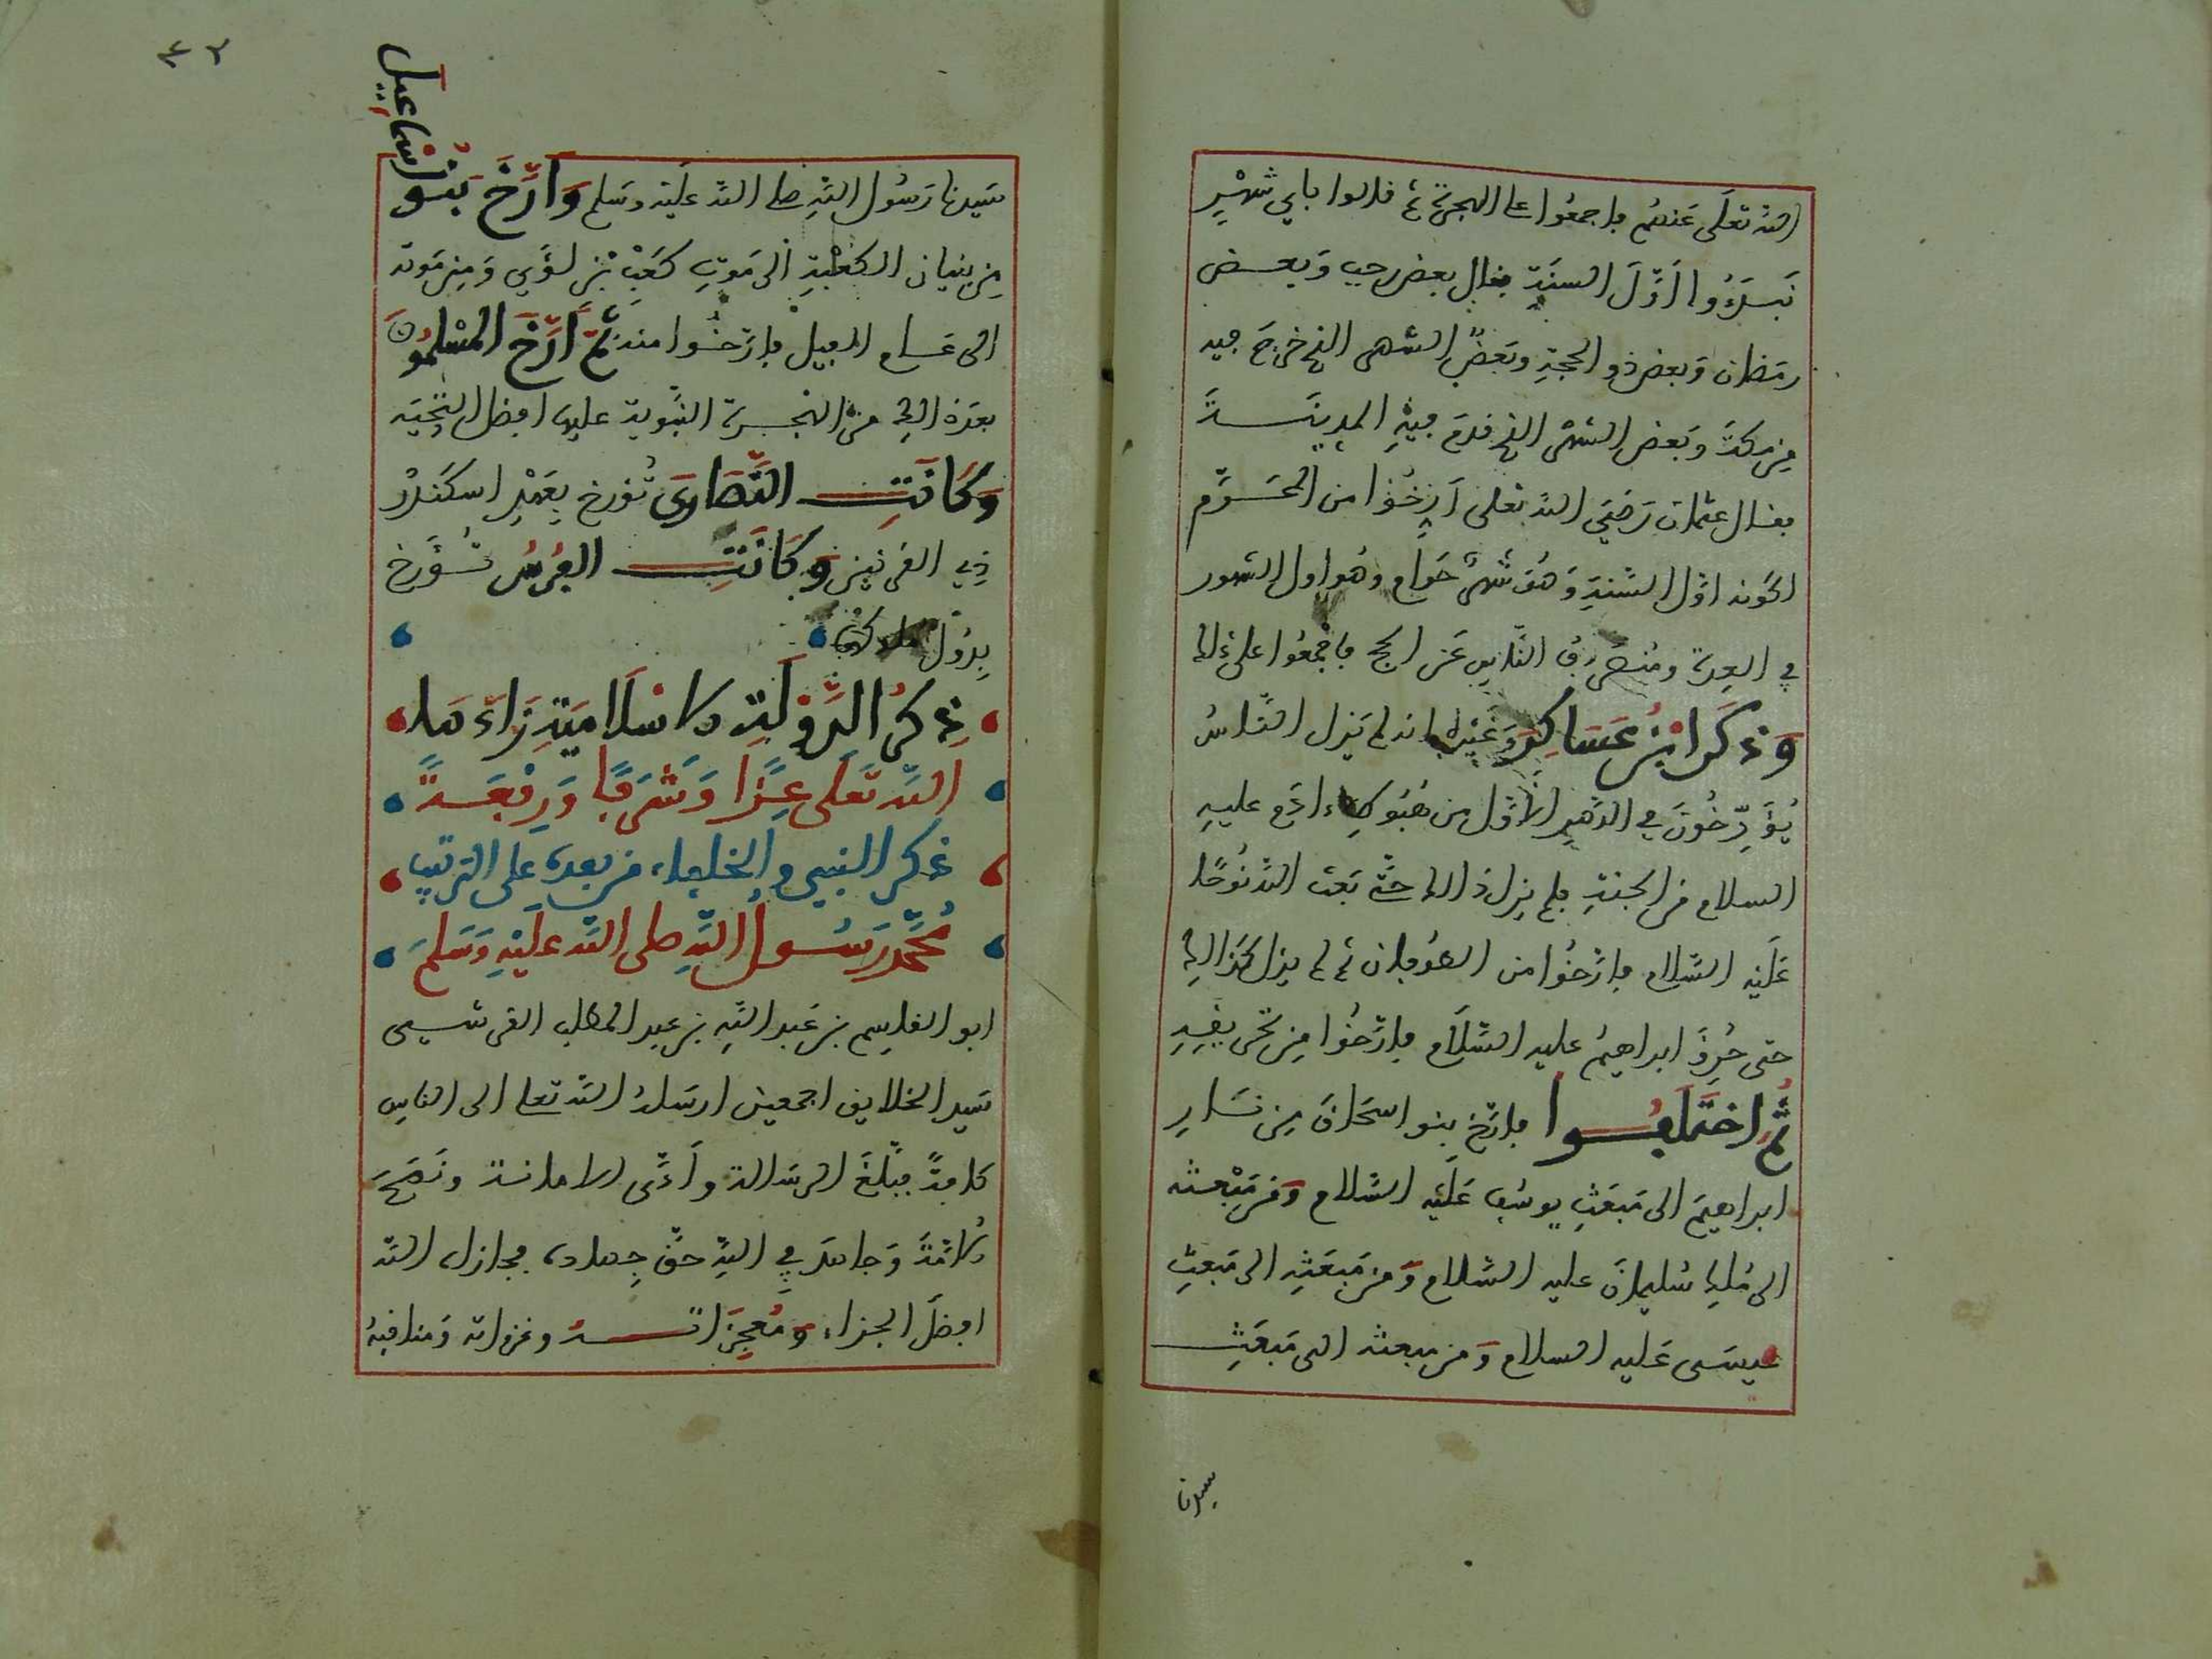 الله تعلى عنهم فاجمعوا على الهجرة ثم قالوا باي شهر
نبدؤوا اول السنة فقال بعض رجب وبعض
رمضان وبعض ذو الحجة وبعض الشهر الذي خرج فيه
من مكة وبعض الشهر الذي قدم فيه المدينة
فقال عثمان رضي الله تعلى ارخوا من المحرم
لكونه اول السنة وهو شهر حرام وهو اول الشهور
في العدة ومنصرف الناس عن الحج فاجمعوا على ذالك
وذكر ابن عساكر وغيره انه لم يزل الناس
يؤرخون في الدهر الاول من هبوط ءادم عليه
السلام من الجنة فلم يزل ذالك حتى بعث الله نوحا
عليه السلام فارخوا من الطوفان ثم لم يزل كذالك
حتى حرق ابراهيم عليه السلام فارخوا من تحريقه
ثم اختلفوا فارخ بنو اسحاق من نار
ابراهيم الى مبعث يوسف عليه السلام ومن مبعثه
الى ملك سليمان عليه السلام ومن مبعثه الى مبعث
عيسى عليه السلام ومن مبعثه الى مبعث
سيدنا
٤٢
سيدنا رسول الله صلى الله عليه وسلم وارخ بنو اسماعيل
من بنيان الكعبة الى موت كعب بن لؤي ومن موته
الى عام الفيل فارخوا منه ثم ارخ المسلمون
بعد ذالك من الهجرة النبوية عليها افضل التحية
وكانت النصارى تؤرخ بعهد اسكندر
ذي القرنين وكانت الفرس تؤرخ
بدول ملوكها
ذكر الدولة الاسلامية زادها
الله تعلى عزا وشرفا ورفعة
ذكر النبي والخلفاء من بعده على الترتيب
محمد رسول الله صلى الله عليه وسلم
ابو القاسم بن عبد الله بن عبد المطلب القرشي
سيد الخلايق اجمعين ارسله الله تعلى الى الناس
كافة فبلغ الرسالة وأدى الامانة ونصح
الامة وجاهد في الله حق جهاده فجازاه الله
افضل الجزاء ومعجزاته وغزواته ومناقبه